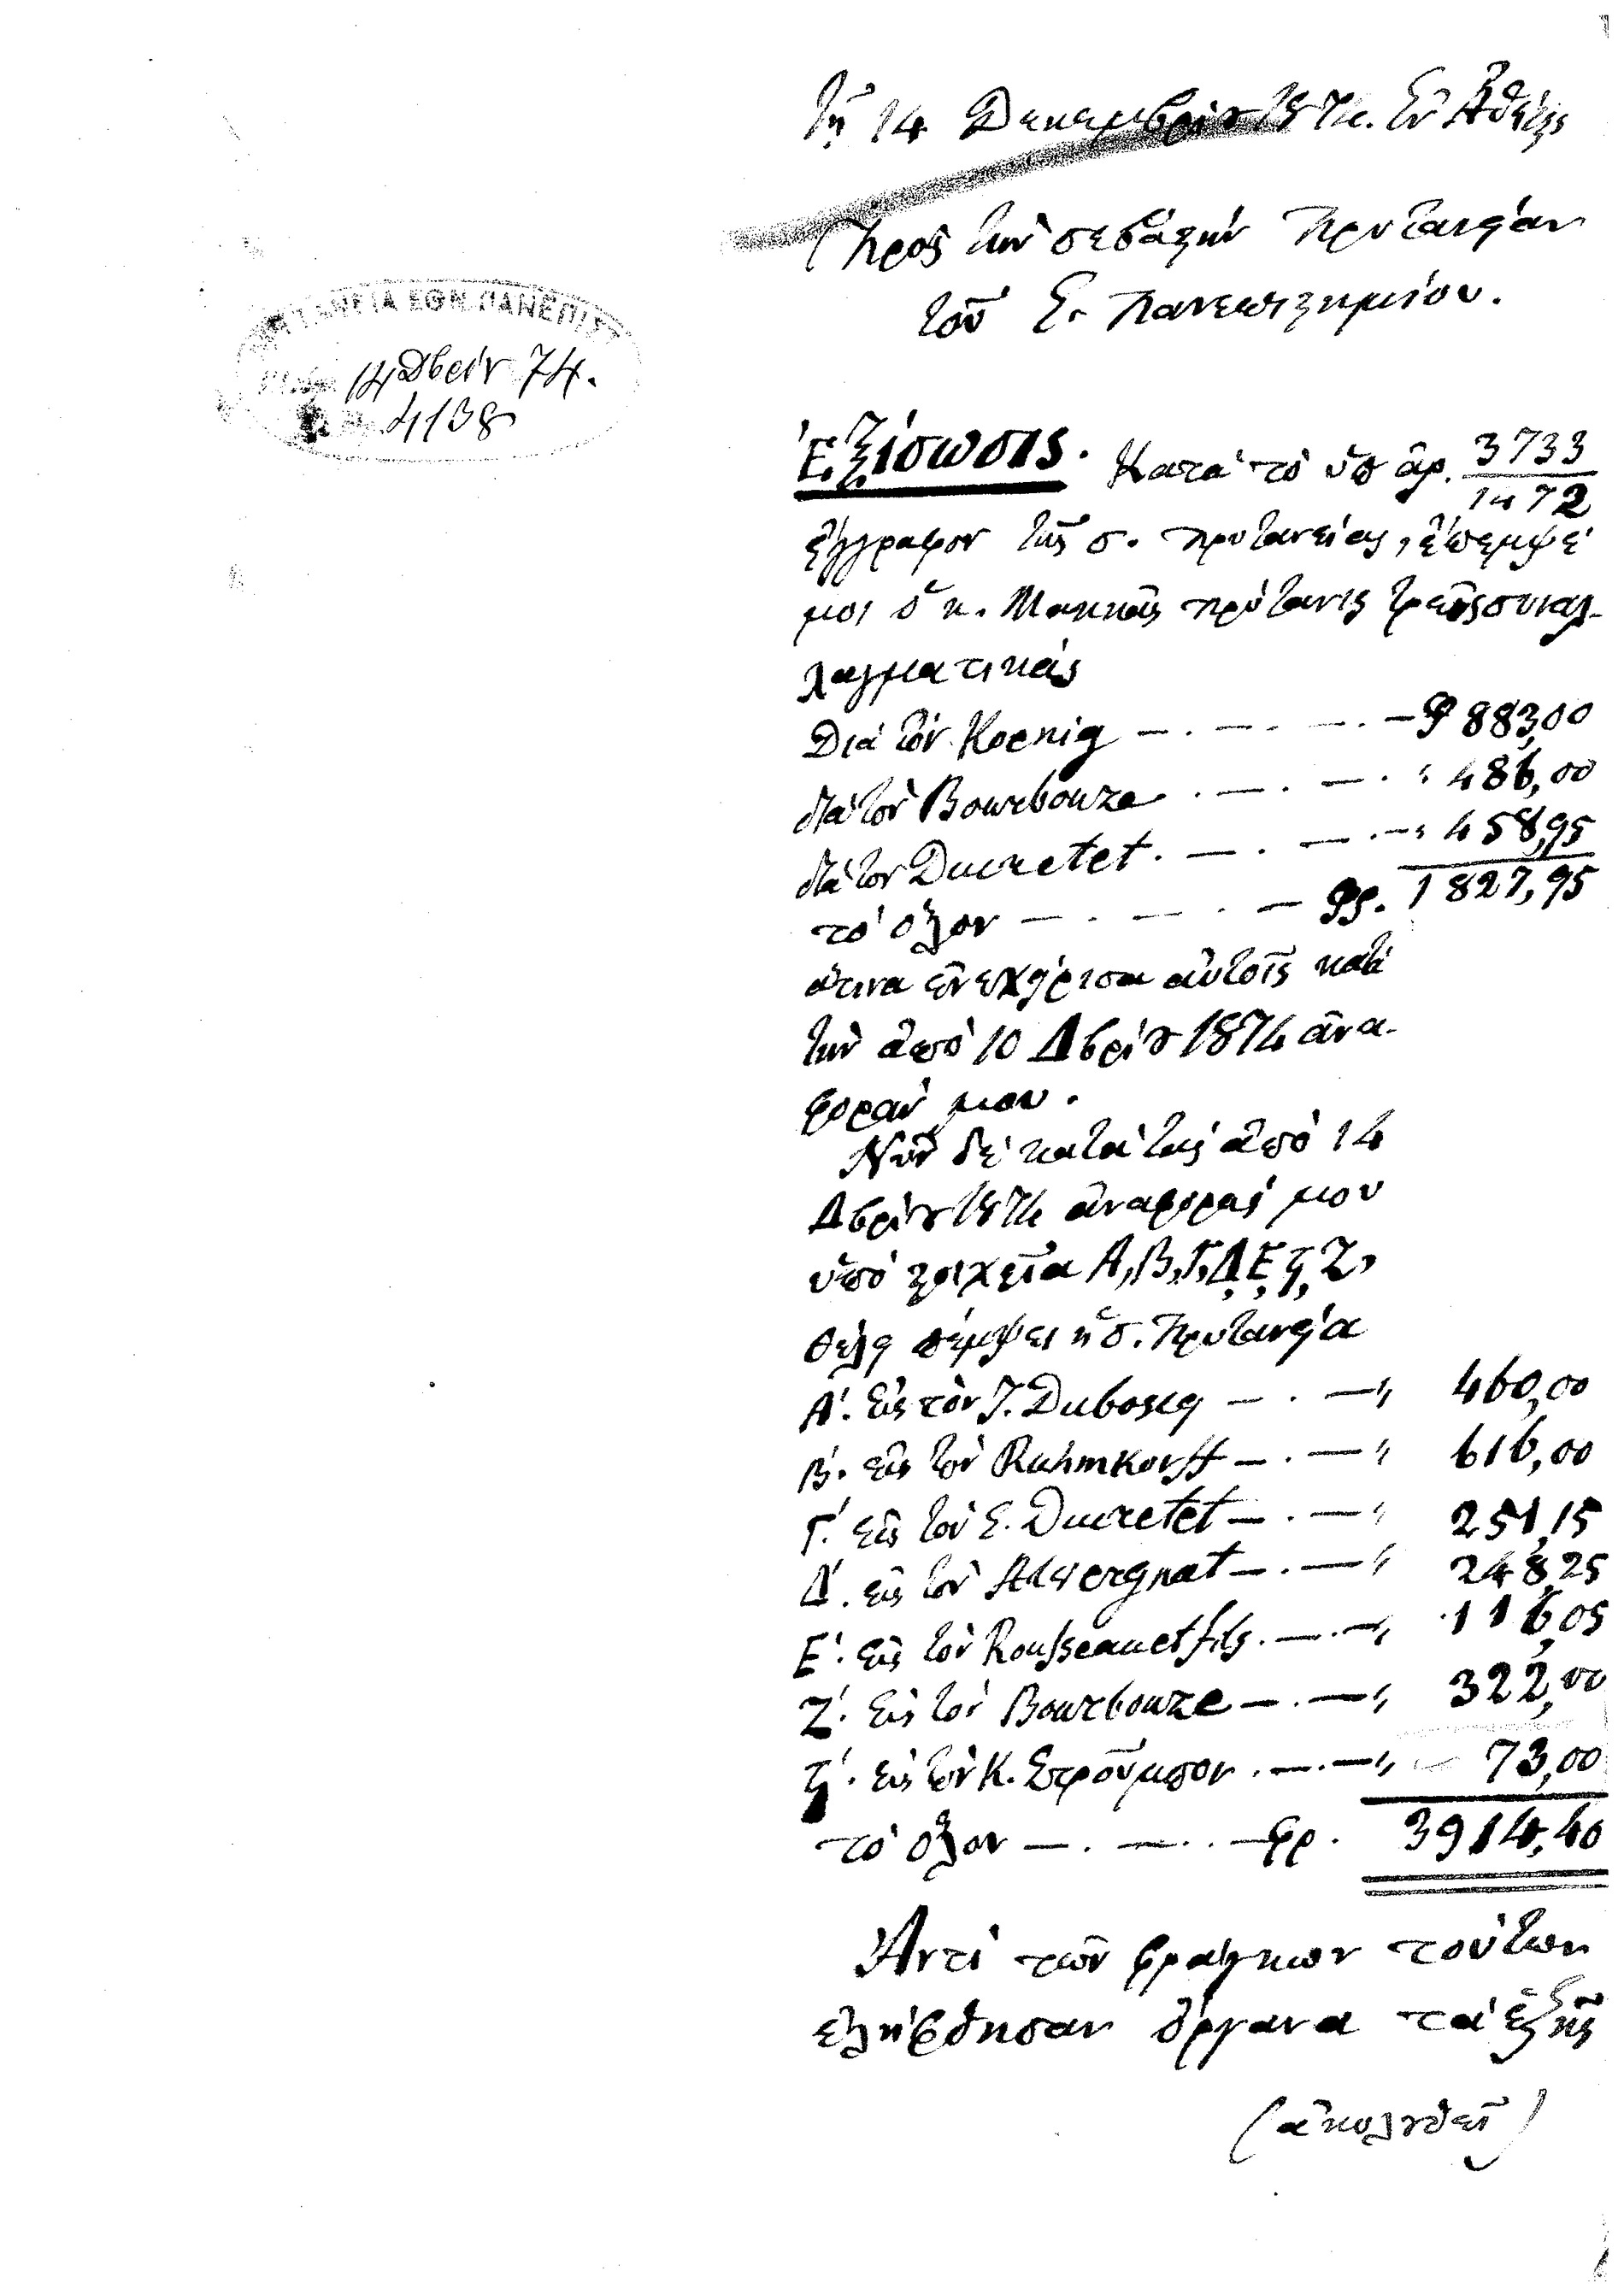 Τῇ 14 Δεκεμβρίου 1874. Ἐν Ἀθήναις
Πρὸς τὴν σεβαστὴν Πρυτανείαν
τοῦ Ἐ. Πανεπιστημίου.
ΠΡΥΤΑΝΕΙΑ ΕΘΝ. ΠΑΝΕΠΙΣΤ
14 Δβρίου 74.
4138
Ἐξίσωσις. Κατὰ τὸ ὑπ' ἀρ. 3733/1472
ἔγγραφον τῆς σ. Πρυτανείας, ἔπεμψέ
μοι ὁ κ. Μακκᾶς πρύτανις τρεῖς συναλ-
λαγματικάς
Διὰ τὸν Koenig — . — . — . — φ 883,00
διὰ τὸν Bourbouze . — . — . " 486,00
διὰ τὸν Ducretet . — . — . — " 458,95
τὸ ὅλον — . — . — φρ. 1827,95
ἅτινα ἐνεχείρισα αὐτοῖς κατὰ
τὴν ἀπὸ 10 Δβρίου 1874 ἀνα-
φοράν μου.
Νῦν δὲ κατὰ τὰς ἀπὸ 14
Δβρίου 1874 ἀναφοράς μου
ὑπὸ στοιχεῖα Α, Β, Γ, Δ, Ε, ϛ, Ζ,
θέλει πέμψει ἡ σ. Πρυτανεία
Α'. Εἰς τὸν J. Duboscq — . — " 460,00
Β'. εἰς τὸν Ruhmkorff — . — " 616,00
Γ'. εἰς τὸν E. Ducretet — . — " 251,15
Δ'. εἰς τὸν Alvergnat — . — " 248,25
Ε'. εἰς τὸν Rousseau et fils . — . — " 116,05
Ζ'. Εἰς τὸν Bourbouze — . — " 322,00
ϛ'. εἰς τὸν Κ. Στροῦμπον . — . — " 73,00
τὸ ὅλον — . — . . — φρ. 3914,40
Ἀντὶ τῶν φράγκων τούτων
ἐλήφθησαν ὄργανα τὰ ἑξῆς
(ἀκολουθεῖ)